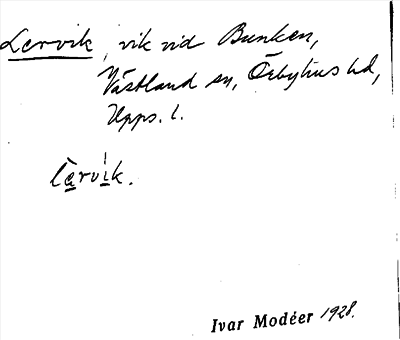 Lervik, vik vid Bunken,
Västland sn, Örbyhus hd,
Upps. l.
lèrvìk.
Ivar Modéer 1928.